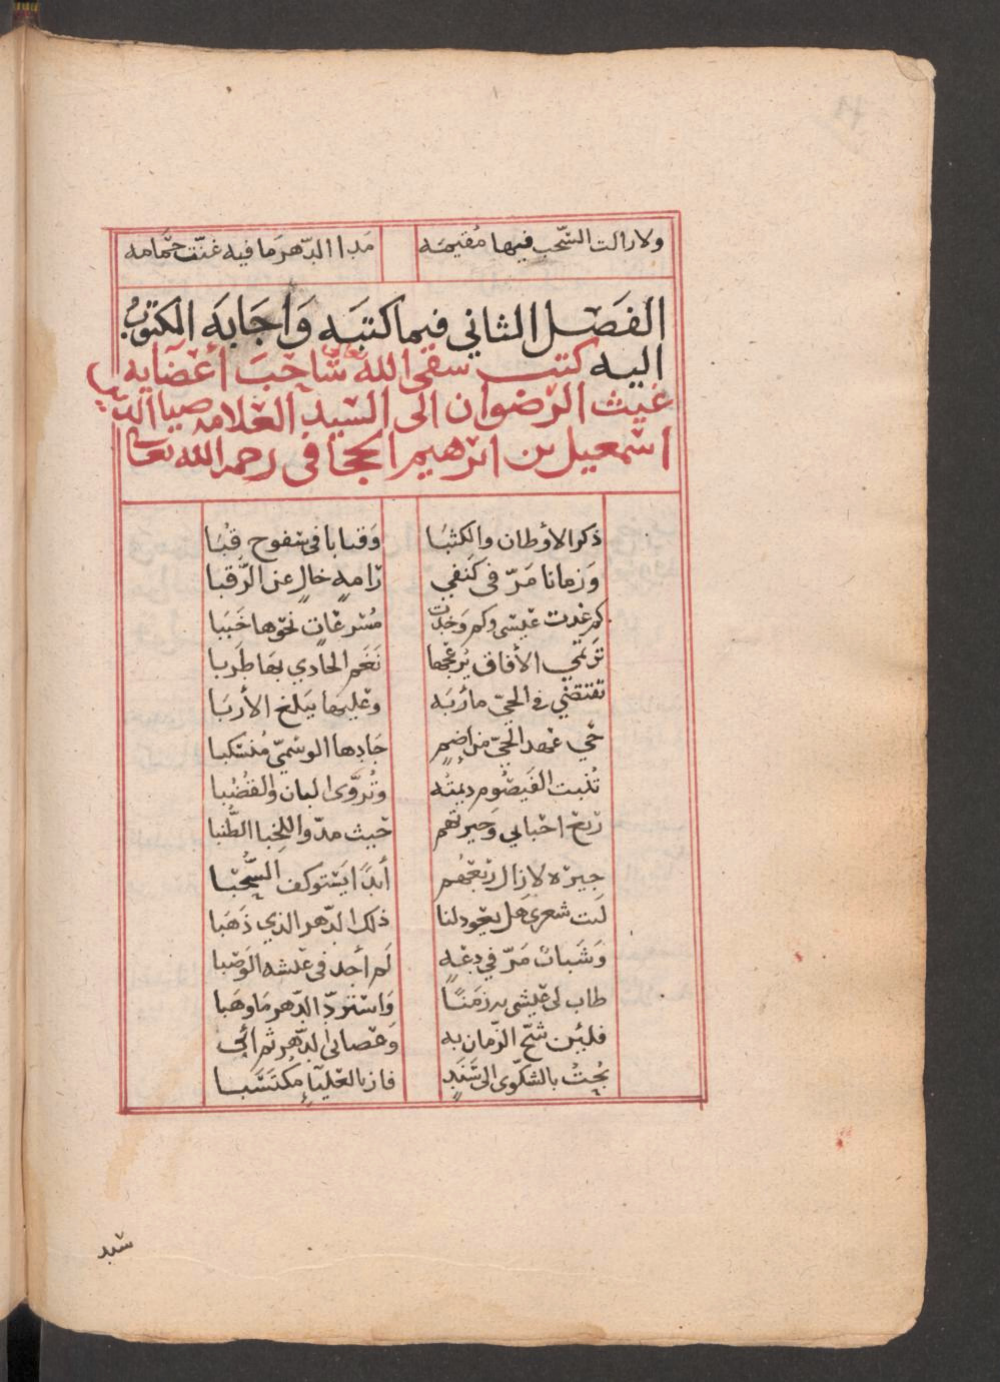 ولازالت السّحب فيها مُقيمَه مَدا الدّهر مَا فيه غنّت حمَامه
الفَصْل الثاني فيما كتبَه وَأجَابَه المكتوبُ
اليه كتب سقى الله شاحب أعضايه
غيث الرّضوان الى السّيد العلامه ضيا الدين
اسمعيل بن ابرهيم الحجافى رحمه الله تعالى
ذكر الأوطان والكثبَا وَقبابا فى سَفوح قبُا
وَزمانا مَرّ فى كنفي رَامةٍ خالٍ عن الرّقبا
كم غدت عيسى وكم وَخدت مُسْرعَاتٍ نحوَها خَبَبا
تَرتمي الأفاق يُزعجها نَغَم الحَادي بهَا طَربا
تقتضي فى الحيّ مأربَه وعَليهَا يَبلغ الأربَا
حَي عَهد الحيّ من إضمٍ جَادها الوسْميّ مُنْسَكبا
تُنبت القَيصُوم ديمتُه وتُروَّى البان والقُضُبا
رَبْع احبابي وَجيرتهم حَيث مدّوا للخبا الطُنبا
جيرة لازال ربْعَهُم أبَدًا يَسْتوكف السُّحْبَا
لَيت شعرى هَل يعُود لنا ذلك الدّهر الذي ذَهَبا
وَشَبابٌ مَرّ في دِعَةٍ لَم أجد فى عَيشه الوَصَبا
طاب لى عَيشى به زمَنًا وَاسْتردّ الدّهر مَا وهَبا
فلئِن شحّ الزّمان به وَعَصانى الدّهر ثم أبى
بُحتُ بالشكوى الى سَنَدٍ فاز بالعَليَاءِ مكتَسَبا
سَيد